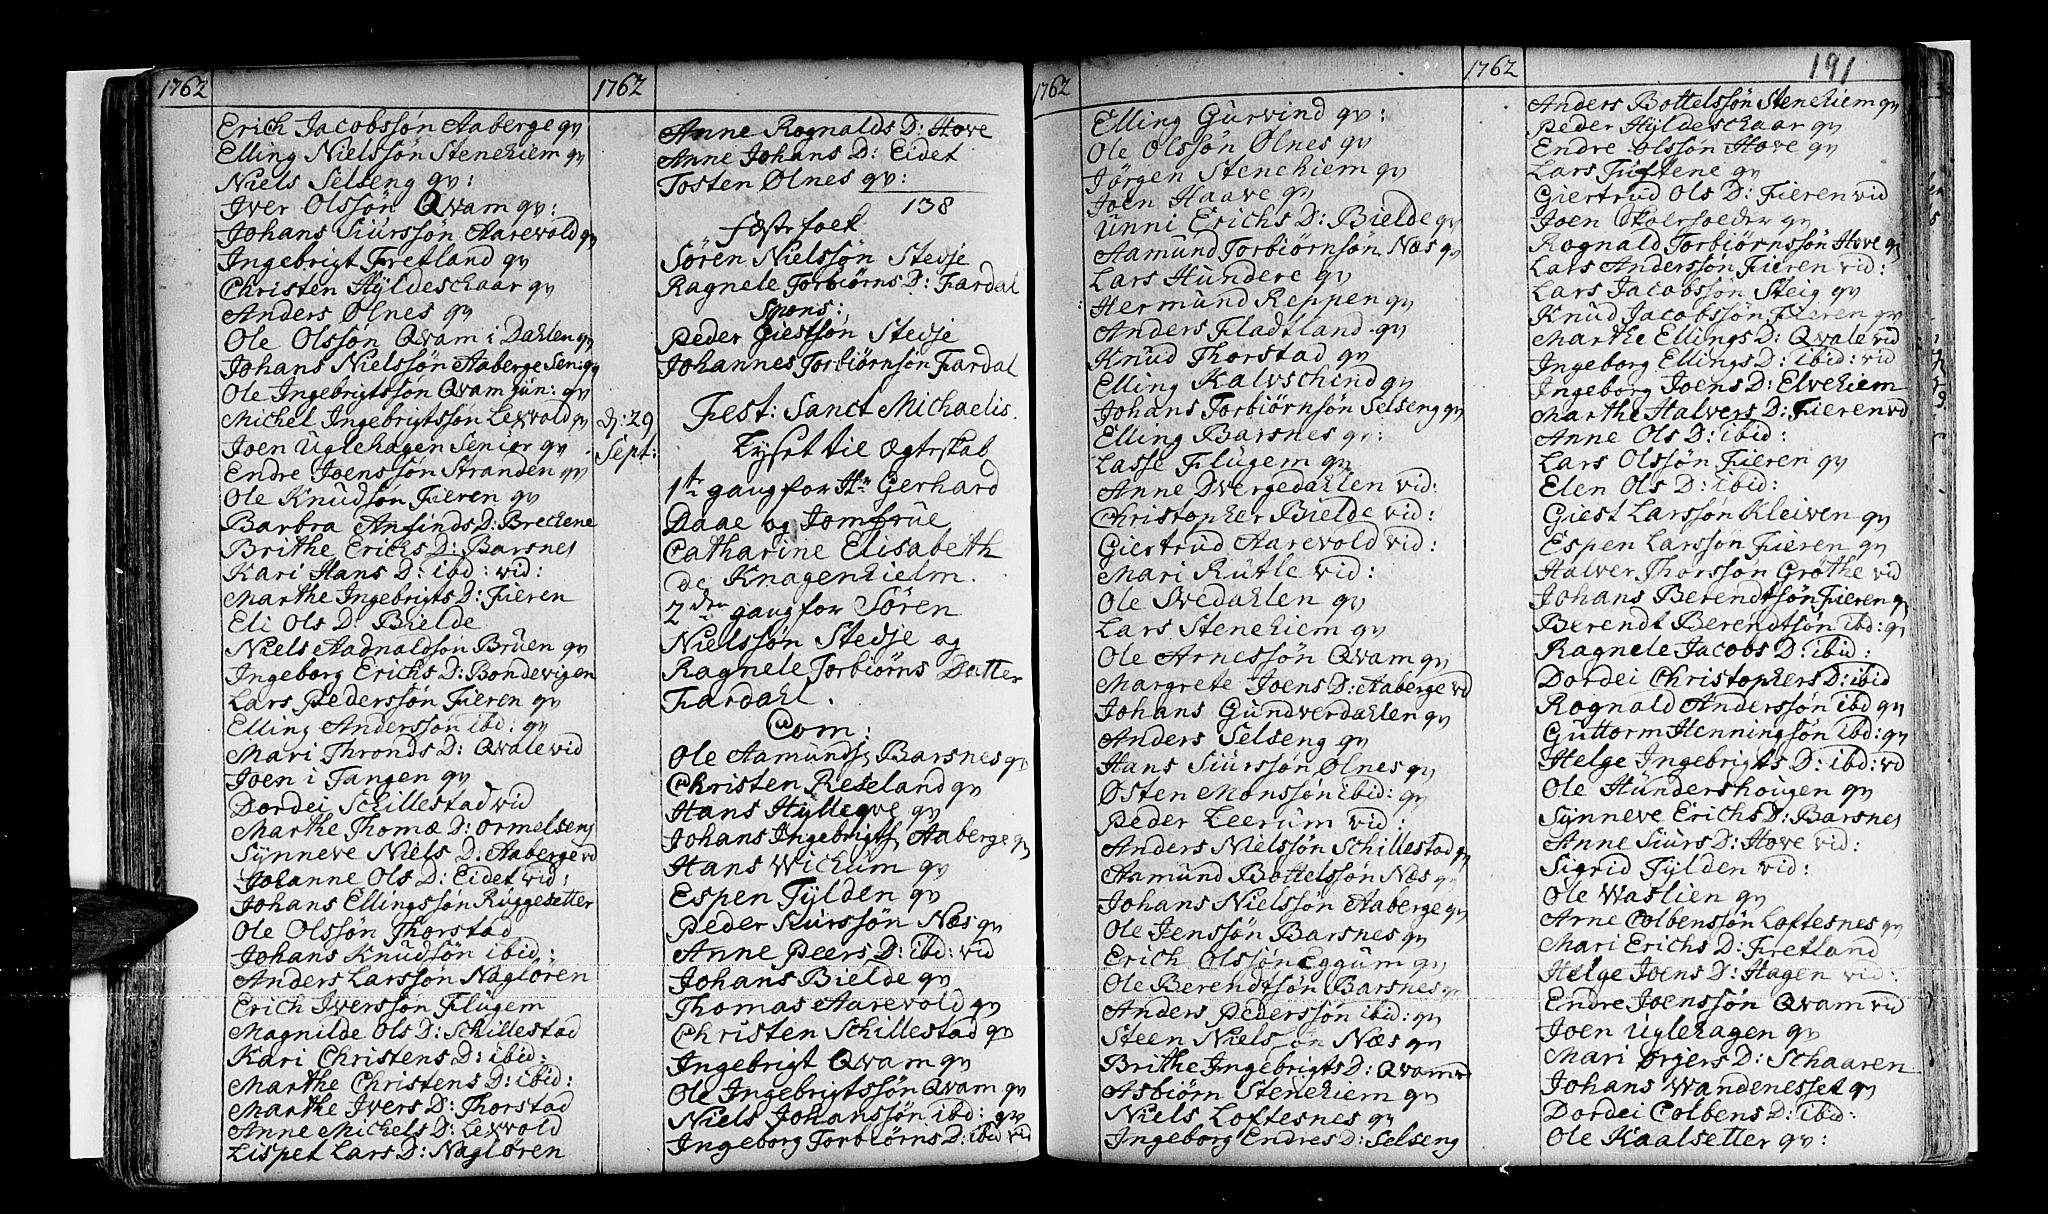 1762
Erich Jacobssøn Aaberge qv
Elling Nielssøn Stenehiem qv
Niels Selseng qv:
Iver Olssøn Qvam qv:
Johans Siurssøn Aarevold qv
Ingebrigt Fretland qv
Christen Hyldeschaar qv
Anders Ølnes qv
Ole Olssøn Qvam i Dahlen qv
Johans Nielssøn Aaberge Seni qv
Ole Ingebrigtssøn Qvam Jun: qv
Michel Ingebrigtssøn Lexvold qv
Joen Uglehagen Senior qv
Endre Joenssøn Stranden qv
Ole Knudsøn Fieren qv
Barbra Anfinds D: Brechene
Brithe Erichs D: Barsnes
Kari Hans D: ibd: vid:
Marthe Ingebrigts D: Fieren
Eli Ols D: Bielde
Niels Aadnaldsøn Bruen qv
Ingeborg Erichs D: Bondevigen
Lars Pederssøn Fieren qv
Elling Anderssøn ibd: qv
Mari Thronds D: Qvale vid
Joen i Tangen qv
Dordei Schillestad vid
Marthe Thomæ D: Ormelseng
Synneve Niels D: Aaberge vd
Johanne Ols D: Eidet vid:
Johans Ellingssøn Ruggesetter
Ole Olssøn Thorstad
Johans Knudsøn ibid:
Anders Larssøn Nagløren
Erich Iverssøn Flugem
Magnilde Ols D: Schillestad
Kari Christens D: ibid:
Marthe Christens D: ibid:
Marthe Ivers D: Thorstad
Anne Michels D: Lexvold
Lispet Lars D: Nagløren
1762
Anne Rognalds D: Hove
Anne Johans D: Eidet
Tosten Ølnes qv:
138
Fæstefolk
Søren Nielssøn Stedje
Ragnele Torbiørns D: Fardal
Spons:
Peder Giestsøn Stedje
Johannes Torbiørnsøn Fardal
D: 29 Sept:
Fest: Sanct Michaelis.
Lyset til Ægteskab
1te gang for Hr Gerhard
Daae og Jomfrue
Catharine Elisabeth
de Knagenhielm.
2den gang for Søren
Nielssøn Stedje og
Ragnele Torbiørns Datter
Fardahl.
Com:
Ole Aamunds: Barsnes qv
Christen Reseland qv
Hans Hylleqve qv
Johans Ingebrigts: Aaberge qv
Hans Wichum qv
Espen Fylden qv
Peder Siurssøn Næs qv
Anne Peers D: ibd: vid
Johans Bielde qv
Thomas Aarevold qv
Christen Schillestad qv
Ingebrigt Qvam qv
Ole Ingebrigtssøn Qvam qv
Niels Johanssøn ibd: qv
Ingeborg Torbiørns D: ibid vid
1762
Elling Gurvind qv:
Ole Olssøn Ølnes qv
Jørgen Stenehiem qv
Joen Haave qv
Unni Erichs D: Bielde qv
Aamund Torbiørnsøn Næs qv
Lars Hundere qv
Hermund Reppen qv
Anders Fladtland qv
Knud Thorstad qv
Elling Kalvschind qv
Johans Torbiørnsøn Selseng qv
Elling Barsnes qv:
Lasse Flugem qv
Anne Dvergedahlen vid:
Christopher Bielde vid:
Giertrud Aarevold vid:
Mari Rutle vid:
Ole Svedahlen qv
Lars Stenehiem qv
Ole Arnessøn Qvam qv
Margrete Joens D: Aaberge vd
Johans Gundverdahlen qv
Anders Selseng qv
Hans Siurssøn Ølnes qv
Østen Monssøn ibid: qv
Peder Leerum vid:
Anders Nielssøn Schillestad qv
Aamund Bottelssøn Næs qv
Johans Nielssøn Aaberge qv
Ole Jenssøn Barsnes qv
Erich Olssøn Eggum qv
Ole Berendtsøn Barsnes qv
Anders Pederssøn ibid: qv
Steen Nielssøn Næs qv
Brithe Ingebrigts D: Qvam vd
Asbiørn Stenehiem qv
Niels Loftesnes qv
Ingeborg Endres D: Selseng
1762
191
Anders Bottelssøn Stenehiem qv
Peder Hyldeschaar qv
Endre Olssøn Hove qv
Lars Tuftene qv
Giertrud Ols D: Fieren vid
Joen qv
Rognald Torbiørnssøn Hove qv
Lars Anderssøn Fieren vid:
Lars Jacobssøn Steig qv
Knud Jacobssøn Fieren qv
Marthe Ellings D: Qvale vid
Ingeborg Ellings D: ibid: vid
Ingeborg Joens D: Elvehiem
Marthe Halvers D: Fieren vd
Anne Ols D: ibid:
Lars Olssøn Fieren qv
Elen Ols D: ibid:
Giest Larssøn Kleiven qv
Espen Larssøn Fieren qv
Halver Thorssøn Grøthe vid
Johans Berendtsøn Fieren qv
Berendt Berendtsøn ibd: qv
Ragnele Jacobs D: ibid:
Dordei Christophers D: ibid
Rognald Anderssøn ibd qv
Guttorm Henningsøn ibd: qv
Helge Ingebrigts D: ibd: vd
Ole Hundershoigen qv
Synneve Erichs D: Barsnes
Anne Siurs D: Hove vid:
Sigrid Fylden vid:
Ole Waslien qv
Arne Colbenssøn Loftesnes qv
Mari Erichs D: Fretland
Helge Joens D: Hagen vid:
Endre Joenssøn Qvam vid
Joen Uglehagen qv
Mari Ørgers D: Schaaren
Johans Wandenesset qv
Dordei Colbens D: ibid:
Ole Kaalsetter qv: